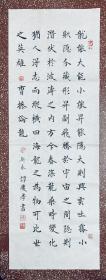 龍能大能小能升能隱大則興雲吐霧小
則隱介藏形升則飛騰於宇宙之間隱則
潛伏於波濤之内方今春深龍乘時變化
猶人得志而縱橫四海龍之為物可比世
之英雄 曹操論龍 慶孝書